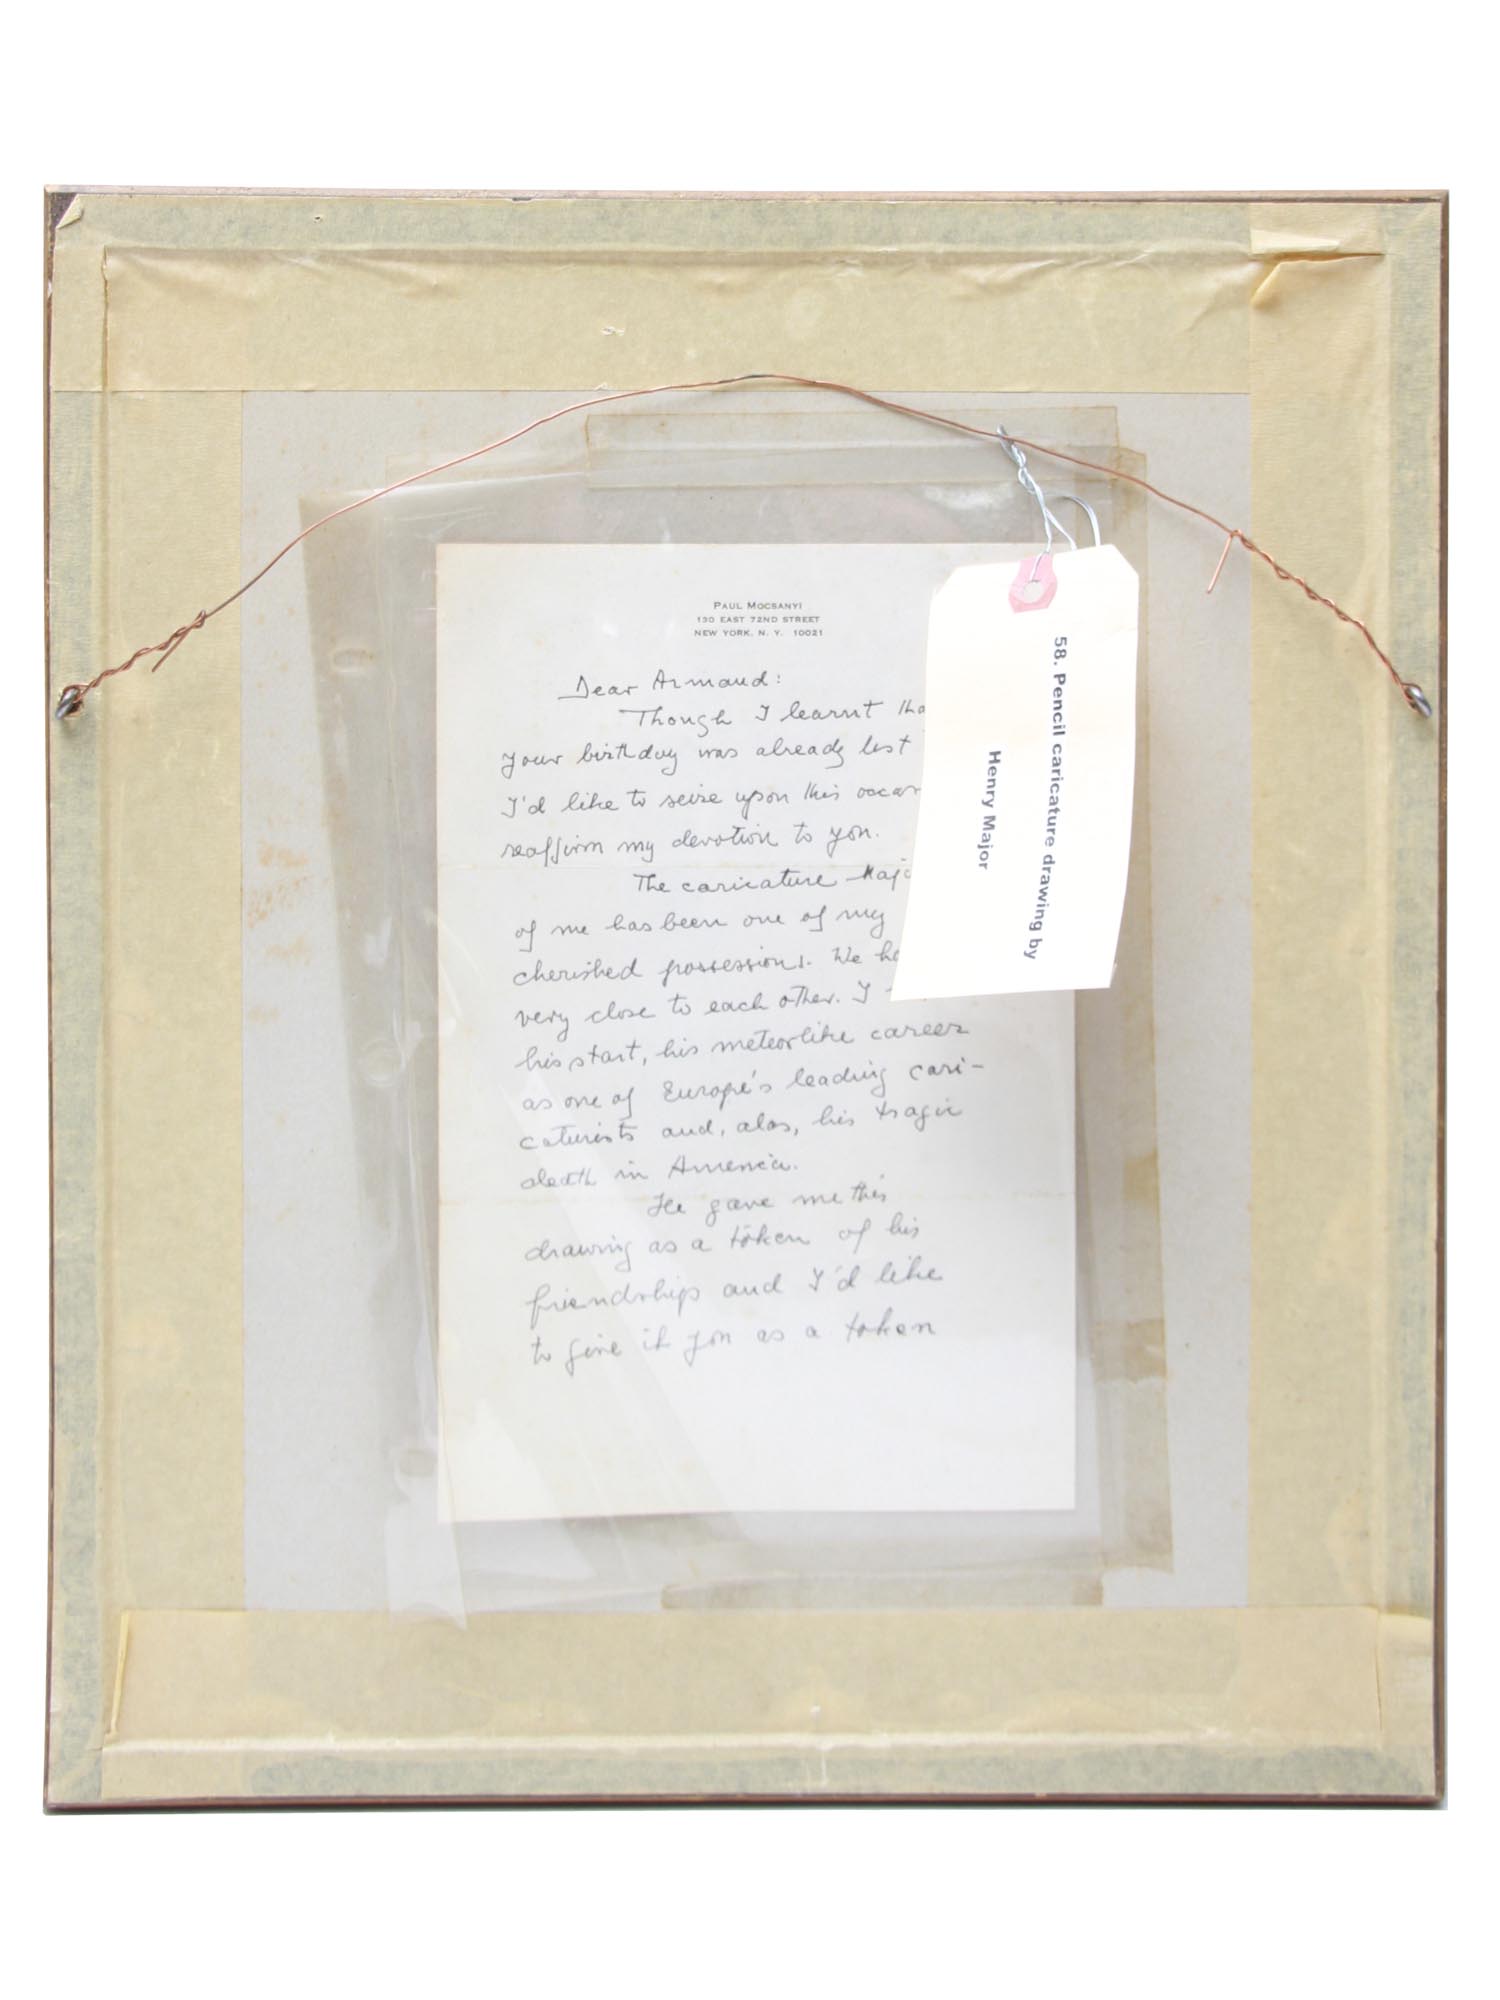 PAUL MOCSANYI
130 EAST 72ND STREET
NEW YORK, N. Y. 10021
Dear Armand:
Though I learnt tha
your birthday was already last
I'd like to seize upon this occas
reaffirm my devotion to you.
The caricature Majo
of me has been one of my
cherished possessions. We ha
very close to each other. I
his start, his meteorlike career
as one of Europe's leading cari-
caturists and, alas, his tragic
death in America.
He gave me this
drawing as a token of his
friendship and I'd like
to give it you as a token
58. Pencil caricature drawing by
Henry Major